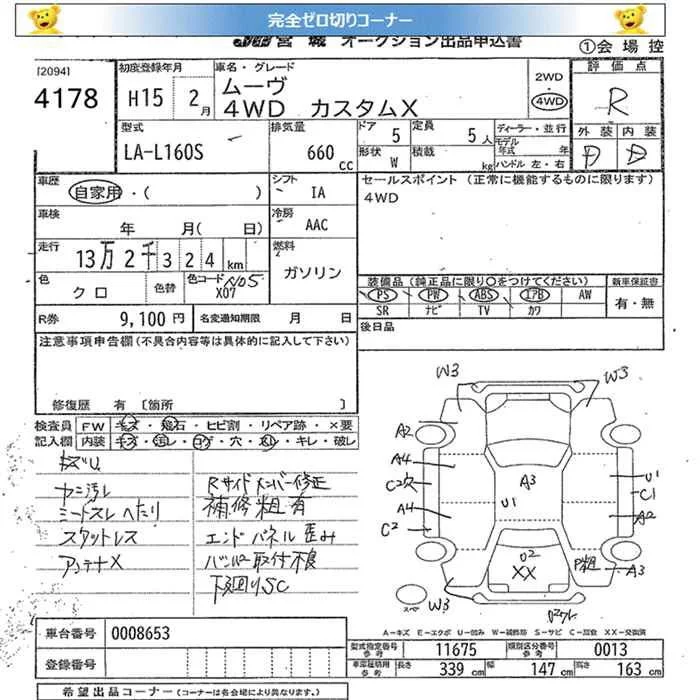 完全ゼロ切りコーナー
宮城 オークション出品申込書
①会場控
[2094]
4178
初度登録年月
H15 2月
車名・グレード
ムーヴ
4WD カスタムX
2WD
4WD
評価点
R
外装 内装
D D
型式
LA-L160S
排気量
660 cc
ドア 5
定員 5人
形状 W
積載 kg
ディーラー・並行
モデル年式 年
ハンドル 左・右
車歴
自家用・( )
シフト
IA
セールスポイント (正常に機能するものに限ります)
4WD
車検
年 月( 日)
冷房
AAC
走行
13万2千324km
燃料
ガソリン
色
クロ
色替
色コードNo5
X07
装備品 (純正品に限り○をつけてください)
新車保証書
PS PW ABS エアB AW
有・無
SR ナビ TV カワ
R券 9,100円
名変通知期限 月 日
後日品
注意事項申告欄 (不具合内容等は具体的に記入して下さい)
修復歴 有 [箇所 ]
検査員
記入欄
FW キズ・飛石・ヒビ割・リペア跡・×要
内装 キズ・汚レ・コゲ・穴・スレ・キレ・破レ
ヤニ汚レ
シートスレへたり
スタットレス
アンテナX
Rサイドメンバー修正
補修粗有
エンドパネル歪み
バンパー取付不良
下廻りSC
W3 W3
A2
A4
C2穴
A4
C2
A3
U1
U1
C1
A2
U2
XX
P粗 A3
スペア
W3
A-キズ E-エクボ U-凹み W-補修跡 S-サビ C-腐食 XX-交換済
車台番号 0008653
登録番号
型式指定番号
参考
11675
類別区分番号
参考
0013
車庫証明用
参考
長さ 339 cm
幅 147 cm
高さ 163 cm
希望出品コーナー (コーナーは各会場により異なります。)